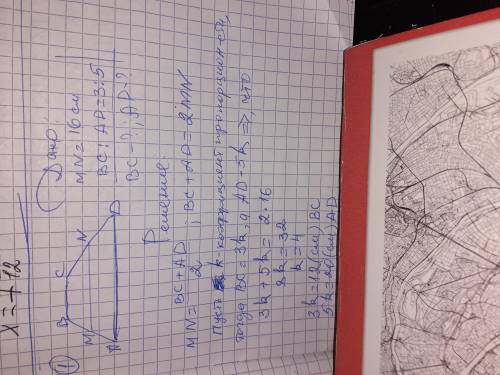 x = ±12
①
B C
M N
A D
Дано:
MN = 16 см
BC : AD = 3:5
BC - ?, AD - ?
Решение
MN = BC + AD / 2 ; BC + AD = 2MN
Пусть k коэффициент пропорциональности,
тогда BC = 3k, а AD = 5k ⇒, что
3k + 5k = 2·16
8k = 32
k = 4
3k = 12 (см) BC
5k = 20 (см) AD